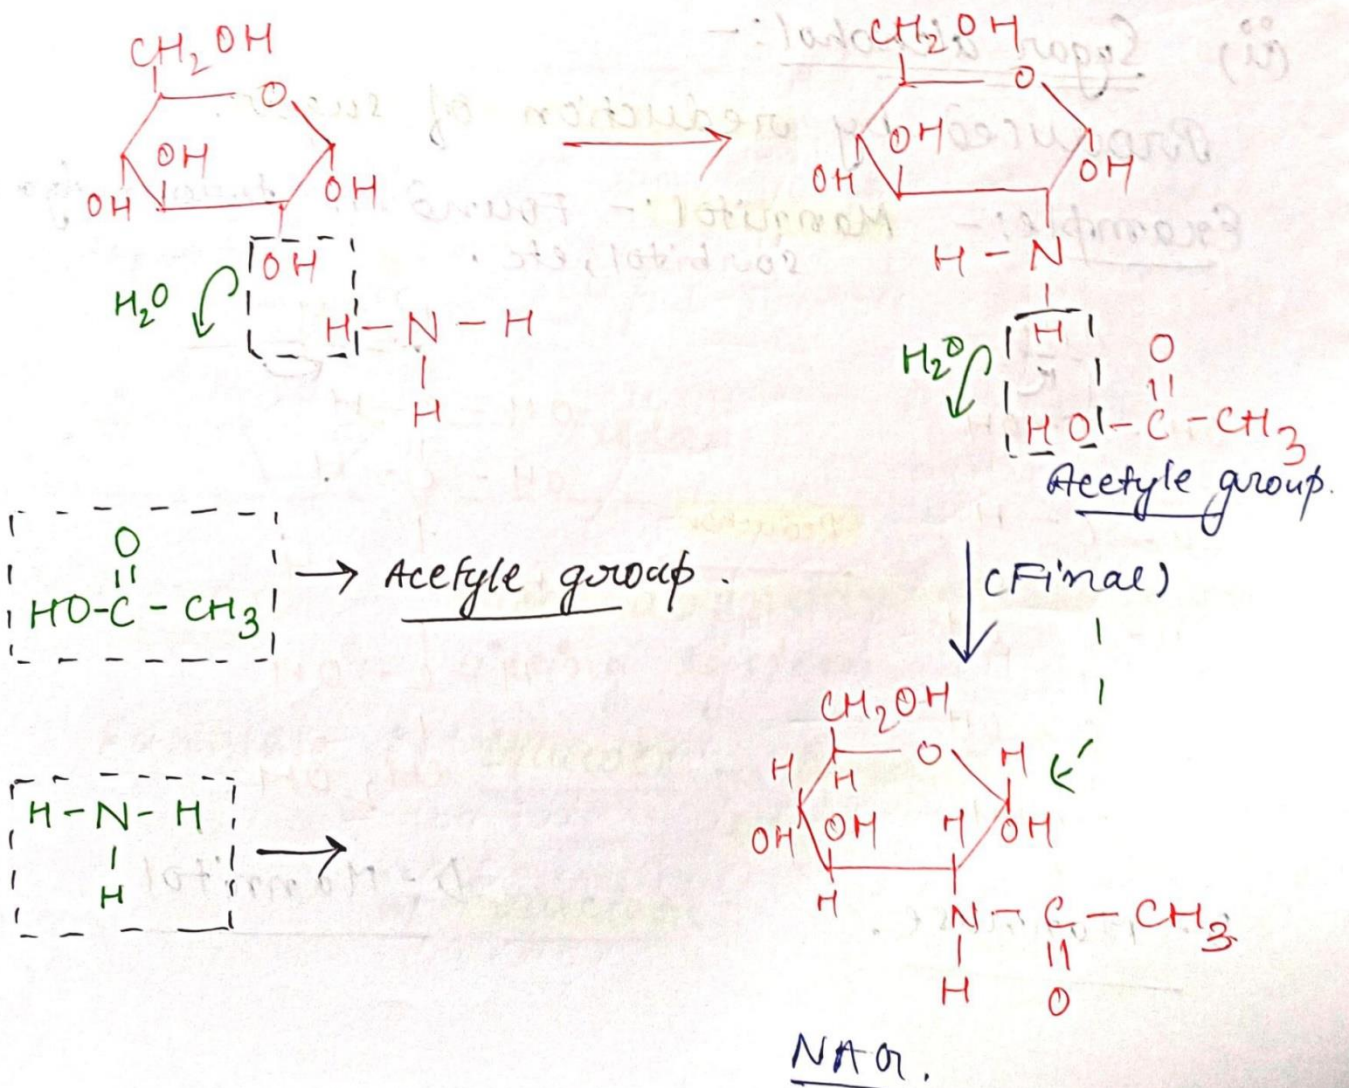 CH2OH
O
OH
OH
OH
OH
H2O
H-N-H
H
CH2OH
O
OH
OH
OH
H-N
H
H2O
O
HO-C-CH3
Acetyle group.
O
HO-C-CH3
→ Acetyle group.
(Final)
H-N-H
H
CH2OH
O
H
H
H
OH
OH
H
OH
H
N-C-CH3
H
O